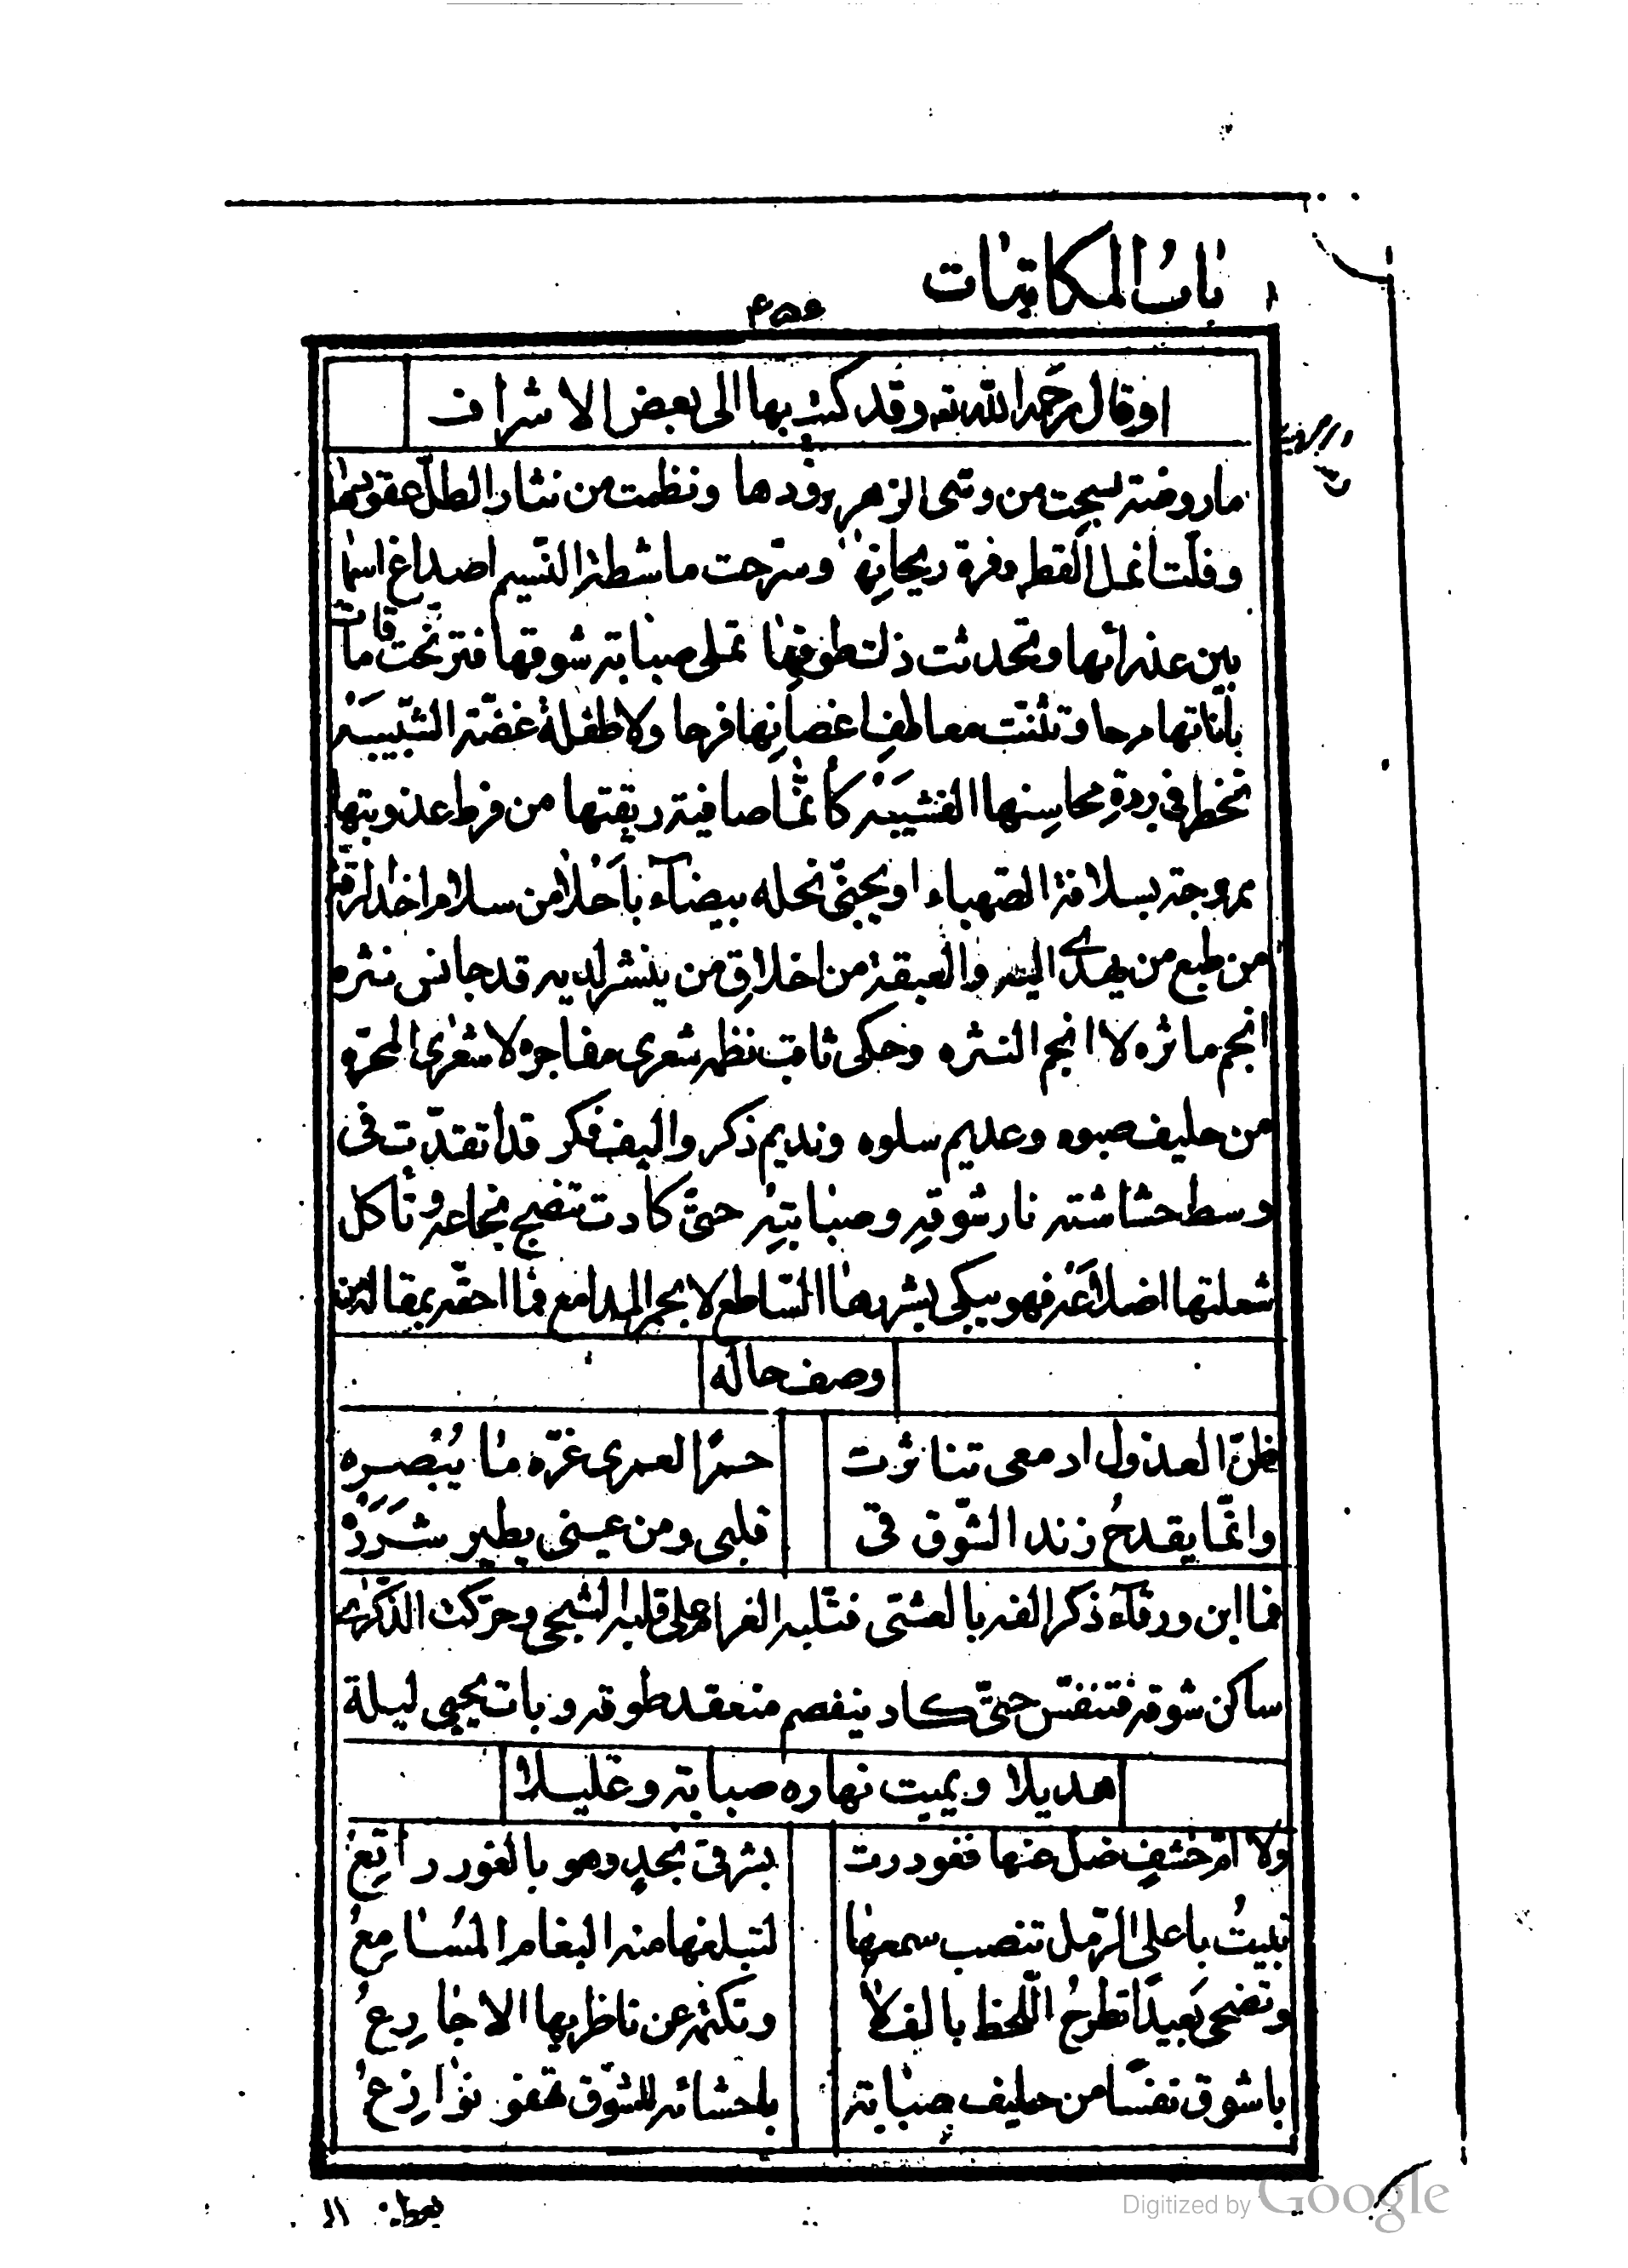 باب المكاتبات
وقال رحمه الله تعـ وقد كتب بها الى بعض الاشراف
ما روضة نسجت من وشى الزهر برودها ونظمت من نثار الطلّ عقودها
وفلّت انمل القطر وفرة ريحانها وسرّحت ماشطة النسيم اصداغ
بين عذرانها وتحدثت ذات طوقها تملى صبابة شوقها فترنحت قامات
باناتها مرحا وتثنت معاطف اغصانها فرحا ولا طفلة غضّة الشبيبه
تخطر في بردة محاسنها القشيبه كأنّما صافية ريقتها من فرط عذوبتها
ممزوجة بسلافة الصهباء او بجنىّ نحله بيضآء باحلا من سلام اخذ الرقة
من طبع من يهدى اليه والعبقة من اخلاق من ينشر لديه قد جانس نثره
انجم ماثره لا انجم النثره وحكى ثاقب نظمه شعرى مفاخره لا شعرى المجرّه
من حليف صبوه وعديم سلوه ونديم ذكر واليف فكر قد اتقدت فى
وسط حشاشته نار شوقه وصبابته حتىّ كادت تنضج نخاعه وتأكل
شعلتها اضلاعه فهو يبكى بشررها الساطع لا بجمر المدامع فما احقّه بمقالة من
وصف حاله
ظنّ العذول ادمعى تناثرت حمرًا لعمرى غرّه ما يبصره
وانّما يقدحُ زند الشوق فى قلبى ومن عينى يطير شرره
فما ابن ورقآء ذكر الفه بالعشى فتلبه الغرام على قلبه الشجى وحركت الذكرى
ساكن شوقه فتنفس حتىّ كاد ينفصم منعقد طوقه وبات يحيى ليلة
هديلا ويميت نهاره صبابة وغليلا
ولا امّ خشفٍ ضلّ عنها فغودرت بشرقىّ نجدٍ وهو بالغور راتعُ
تبيتُ باعلى الرّمل تنصب سمعها لتبلغها منه البغام المسامعُ
وتضحى بعيدًا تطرحُ اللحظ بالفلا وتكثر عن ناظريها الاجارعُ
باشوق نفسًا من حليف صبابة باحشائه للشوق تهفو نوازعُ
Digitized by Google